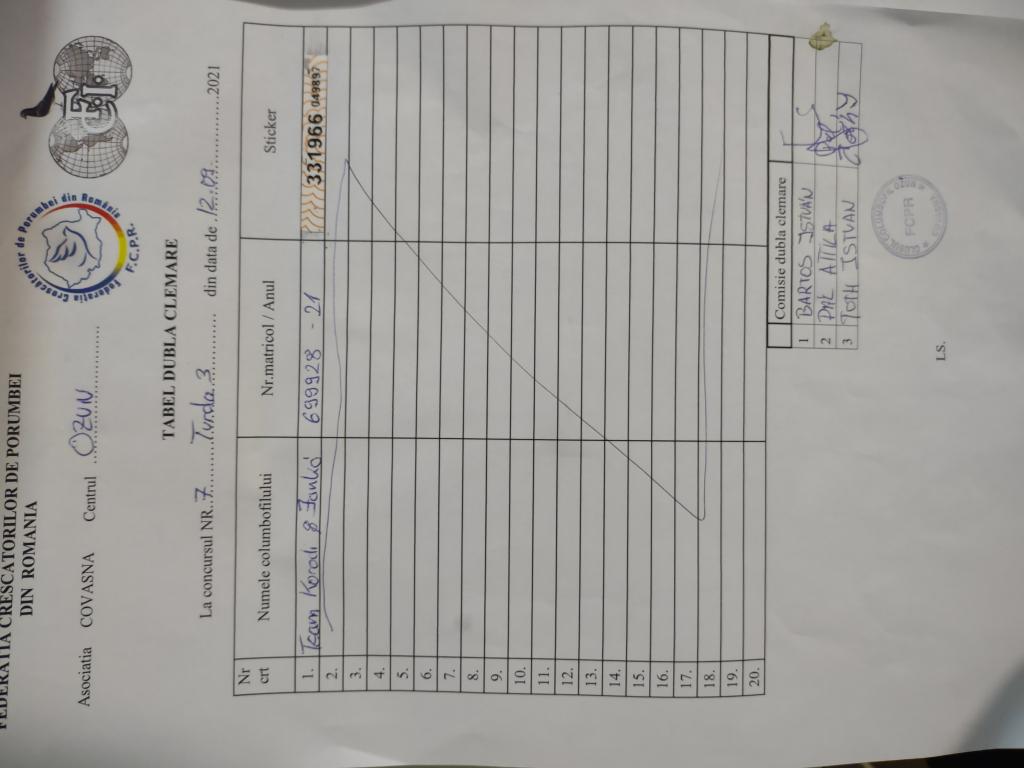 FEDERATIA CRESCATORILOR DE PORUMBEI
DIN ROMANIA
Federatia Crescatorilor de Porumbei din România
F.C.P.R.
FCI
Asociatia COVASNA Centrul OZUN
TABEL DUBLA CLEMARE
La concursul NR. 7 Turda 3 din data de 12.09 2021
Nr crt Numele columbofilului Nr.matricol / Anul Sticker
1. Team Koradi & Jankó 699928 - 21 331966 049897
2.
3.
4.
5.
6.
7.
8.
9.
10.
11.
12.
13.
14.
15.
16.
17.
18.
19.
20.
Comisie dubla clemare
1 BARTOS ISTVAN
2 PAL ATTILA
3 TOTH ISTVAN
FCPR
LS.